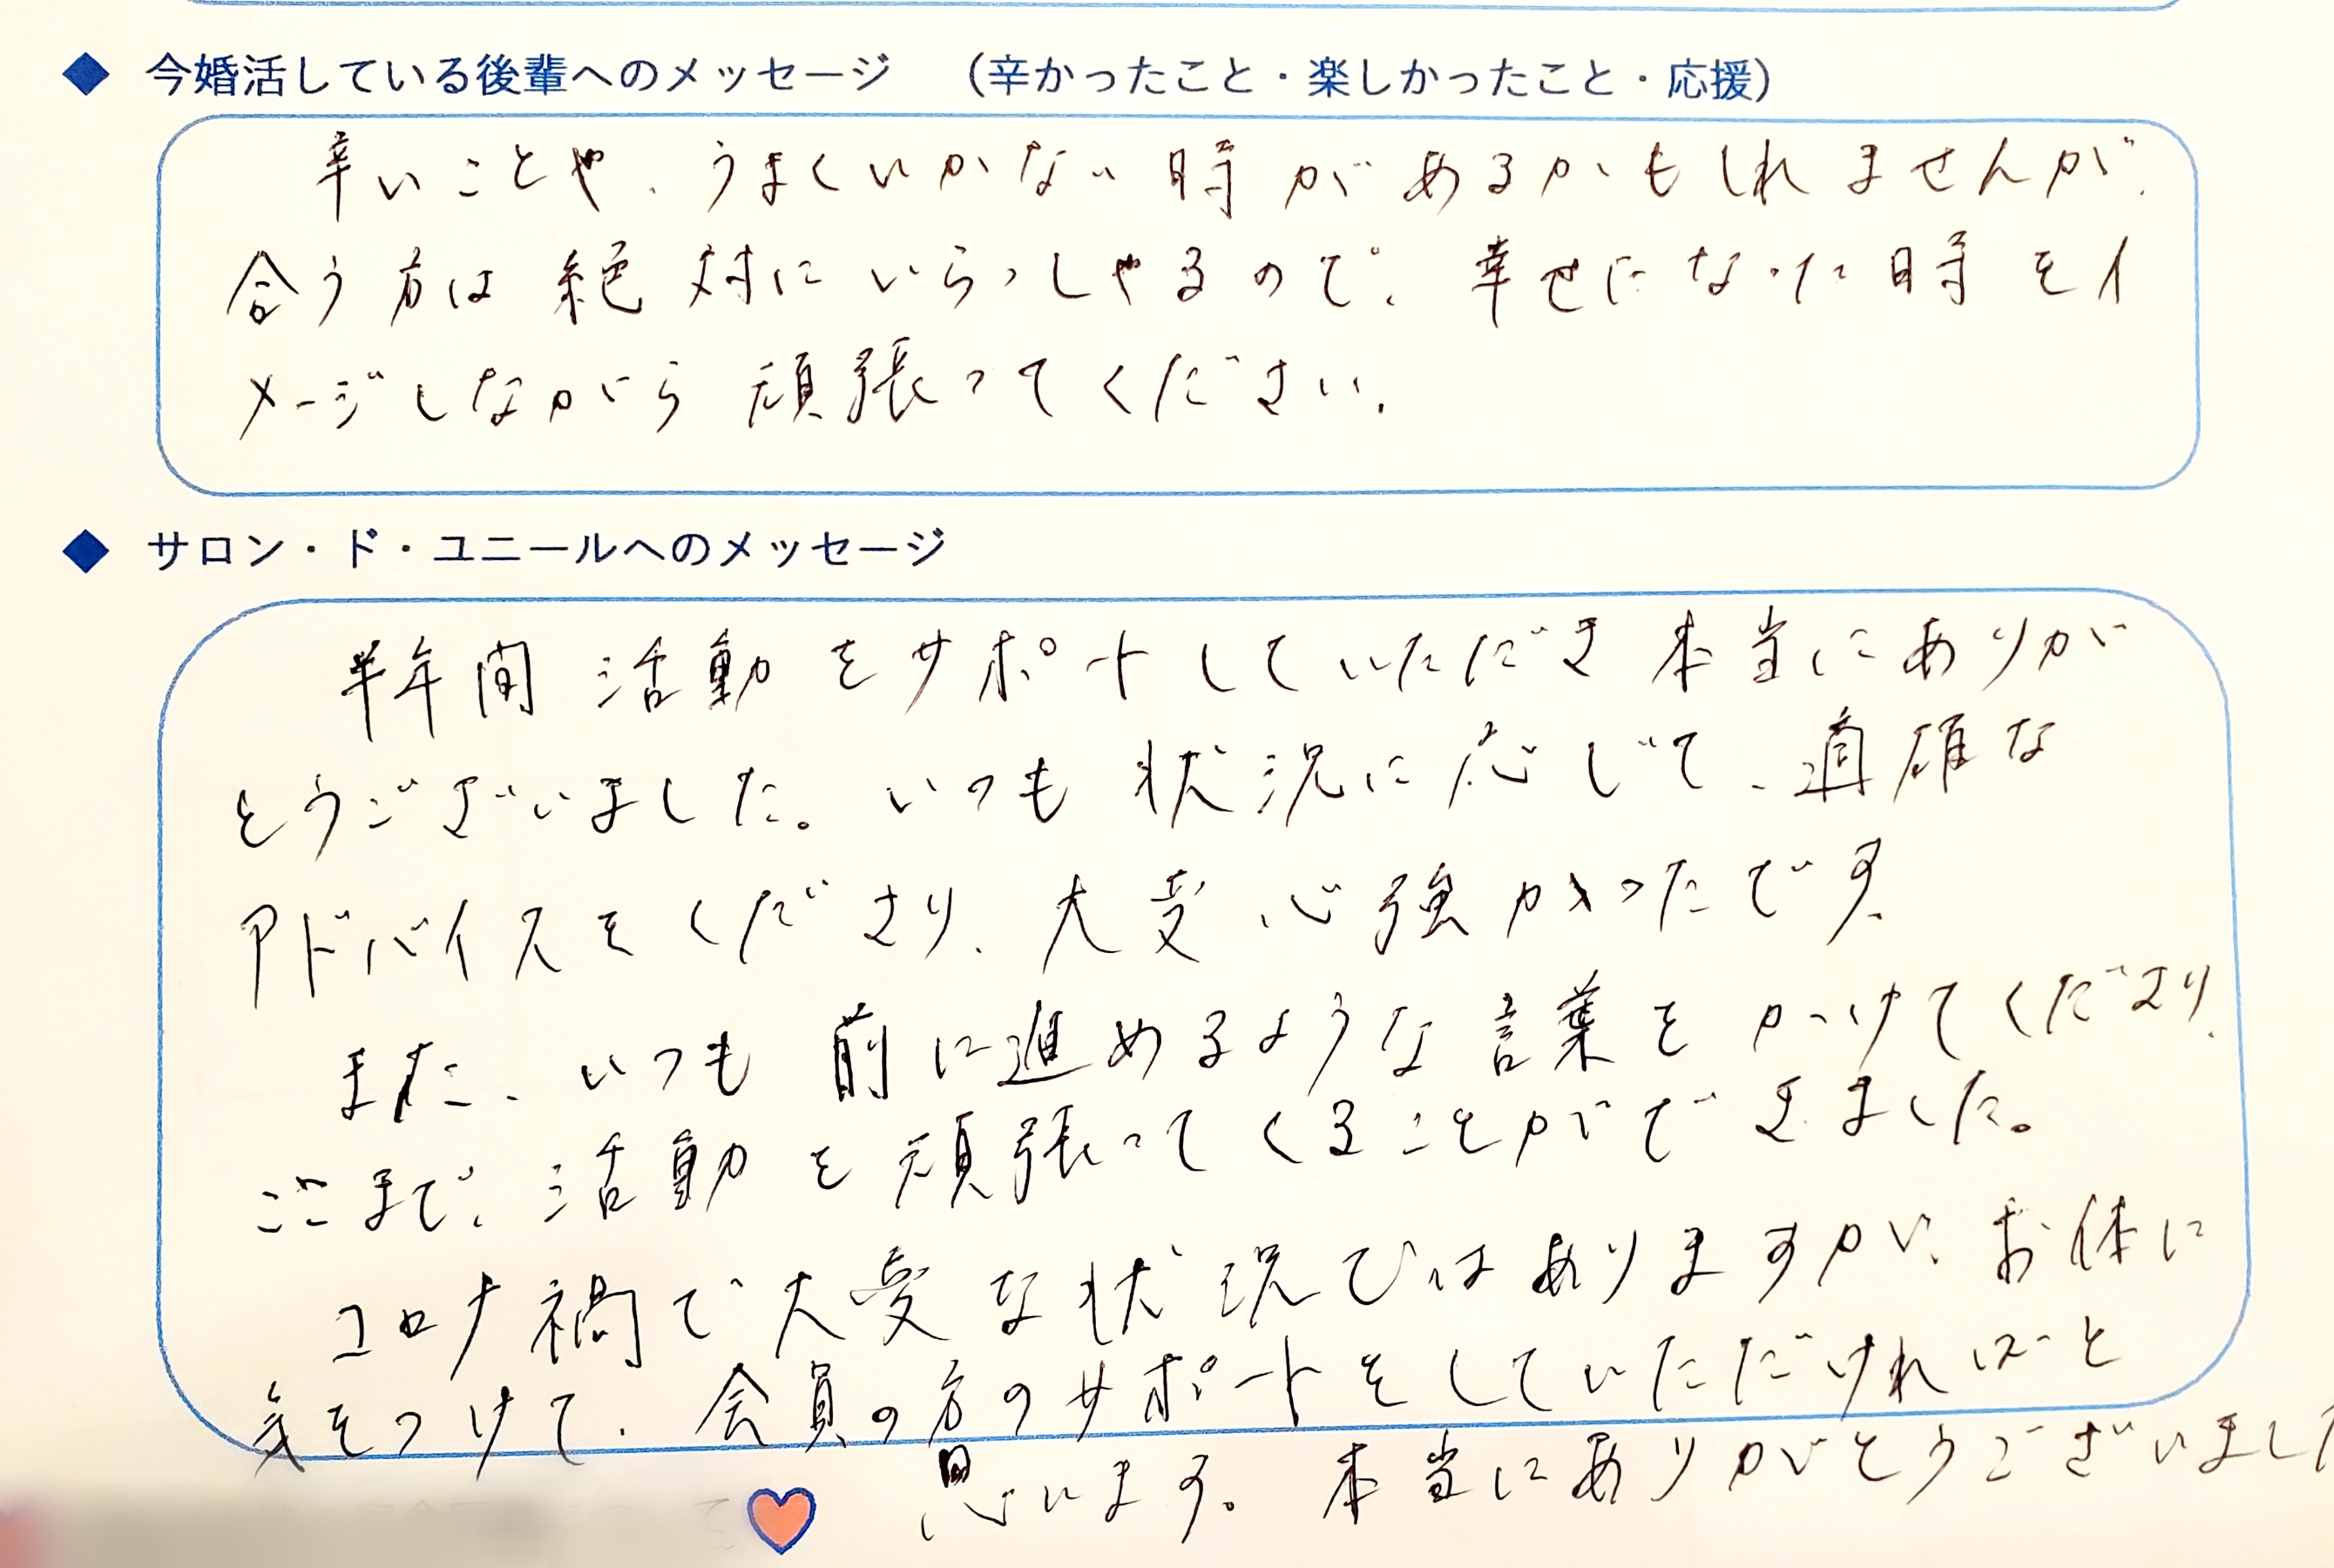 ◆ 今婚活している後輩へのメッセージ （辛かったこと・楽しかったこと・応援）
辛いことや、うまくいかない時があるかもしれませんが、
合う方は絶対にいらっしゃるので、幸せになった時をイ
メージしながら頑張ってください。
◆ サロン・ド・ユニールへのメッセージ
半年間活動をサポートしていただき本当にありが
とうございました。いつも状況に応じて、適確な
アドバイスをくださり、大変心強かったです。
また、いつも前に進めるような言葉をかけてくださり、
ここまで、活動を頑張ってくることができました。
コロナ禍で大変な状況ではありますが、お体に
気をつけて、会員の方のサポートをしていただければと
思います。本当にありがとうございました